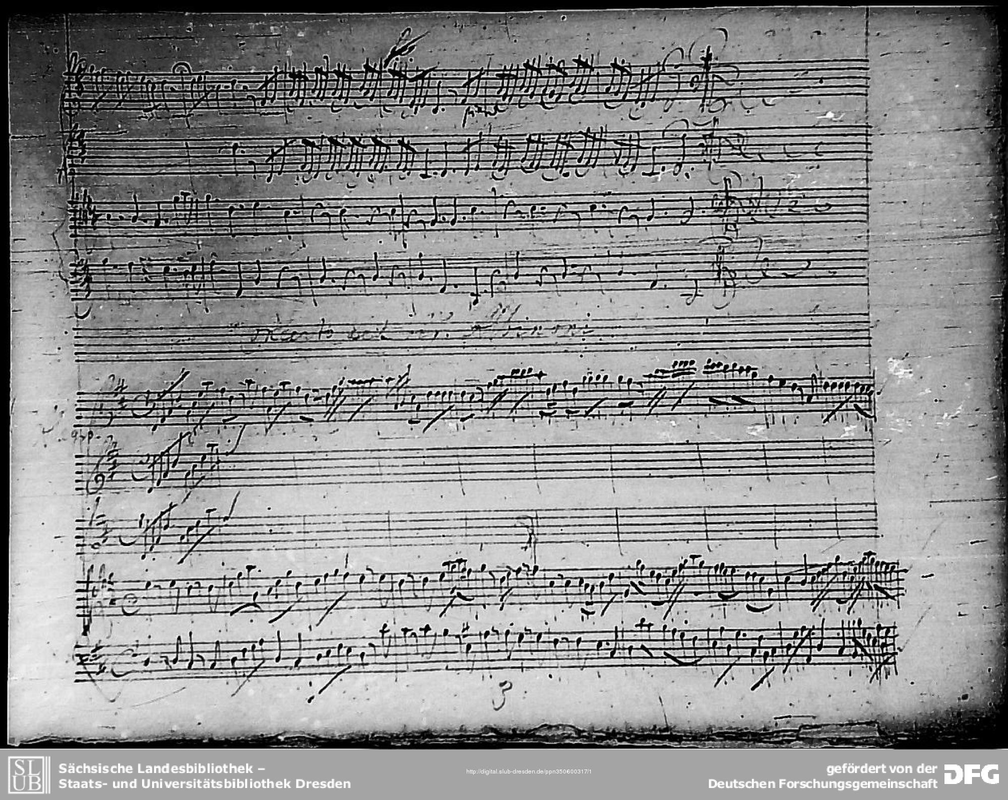 piano
Concerto del Sig. Albinoni
3
SLUB
Sächsische Landesbibliothek –
Staats- und Universitätsbibliothek Dresden
http://digital.slub-dresden.de/ppn350600317/1
gefördert von der
Deutschen Forschungsgemeinschaft
DFG